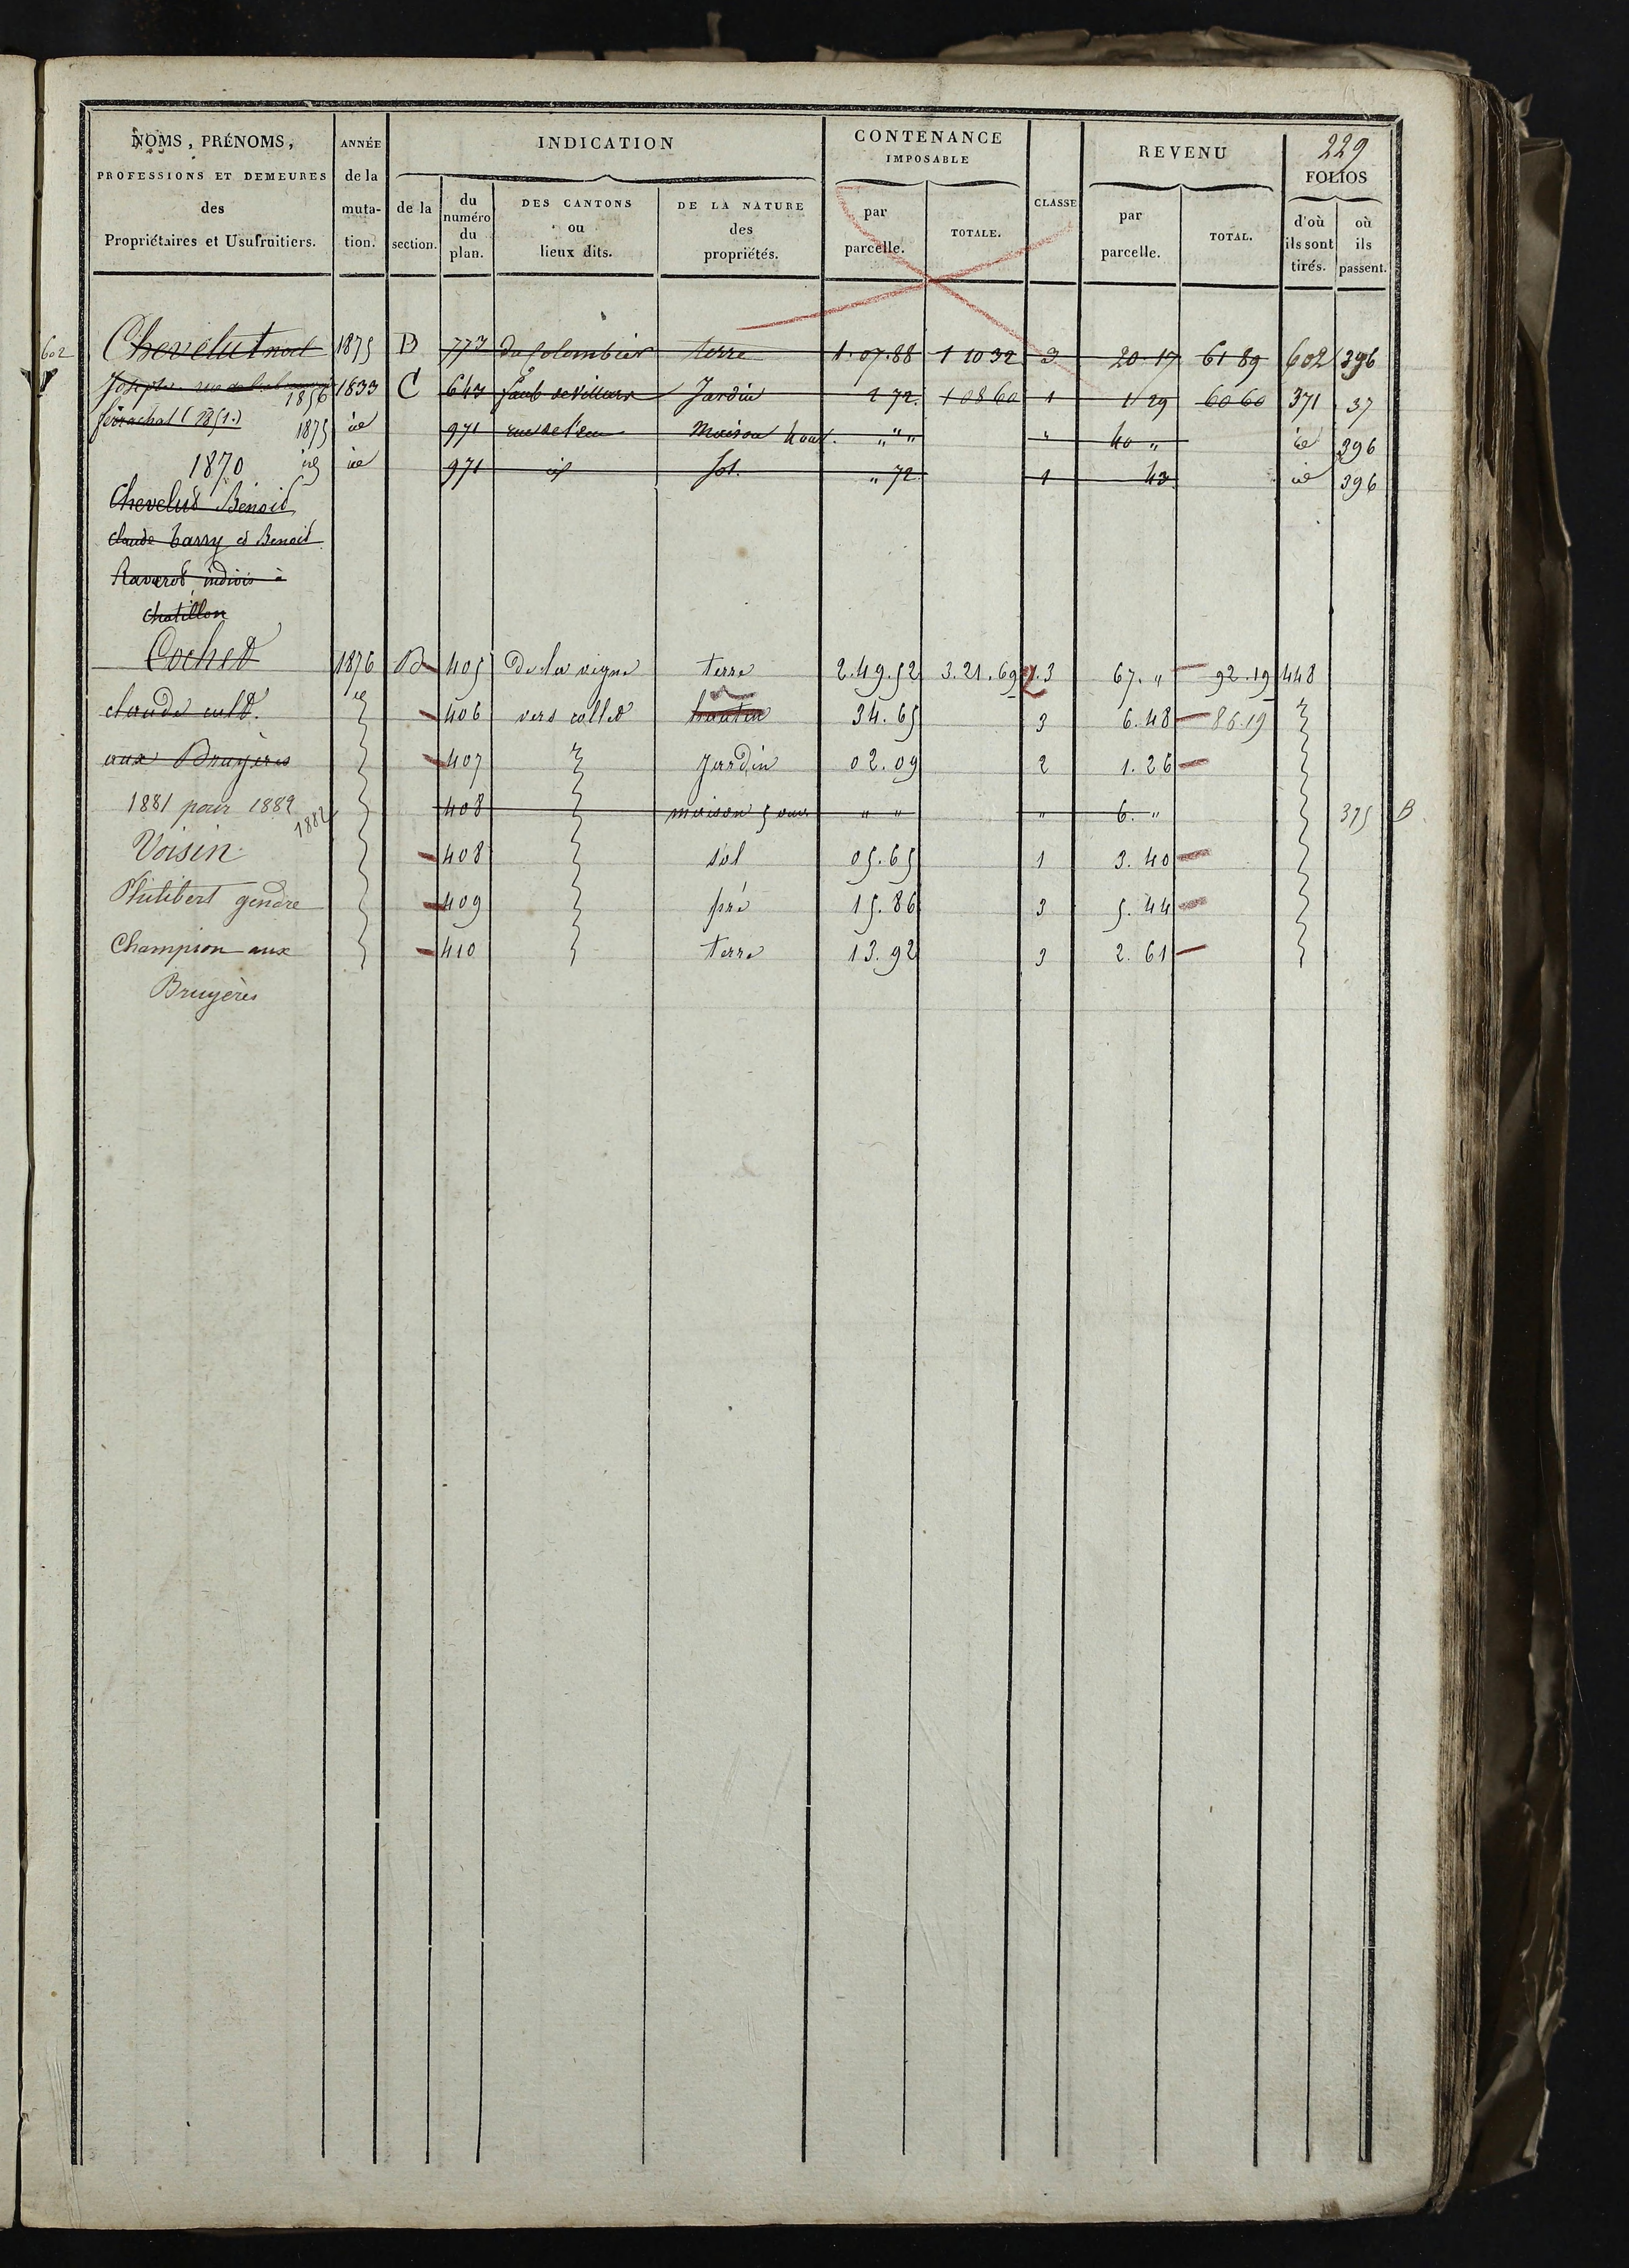 229
NOMS, PRÉNOMS,
PROFESSIONS ET DEMEURES
des
Propriétaires et Usufruitiers.
ANNÉE
de la
muta-
tion.
INDICATION
de la
section.
du
numéro
du
plan.
DES CANTONS
ou
lieux dits.
DE LA NATURE
des
propriétés.
CONTENANCE
IMPOSABLE
par
parcelle.
TOTALE.
CLASSE
REVENU
par
parcelle.
TOTAL.
FOLIOS
d'où
ils sont
tirés.
où
ils
passent.
602 Chevelut 1875 B 773 du Colombier terre 1.07.88 1 10 32 3 20.17 61 89 602 396
Joseph 1856 1833 C 643 faub de Villars Jardin 2 72. 1 08 60 1 1 29 60 60 371 37
1875 id 971 rue de l'eau Maison " " " " 40 " id 396
1870 id id 971 id sol. " 72 1 43 id 396
Chevelud Benoid
claude barry et Benoit
Raverot indivis à
chatillon
Cochet 1876 B 405 De la vigne terre 2.49.52 3.21.69 2.3 67. " 92.19 448
claude cult. id 406 vers collet hautin 34.65 3 6.48 86.19
aux Bruyères 407 Jardin 02.09 2 1.26
1881 pour 1882 1882 408 maison 5 ouv " " " 6. " 375 B
Voisin 408 sol 05.65 1 3.40
Philibert gendre 409 pré 15.86 3 5.44
Champion aux 410 terre 13.92 3 2.61
Bruyères